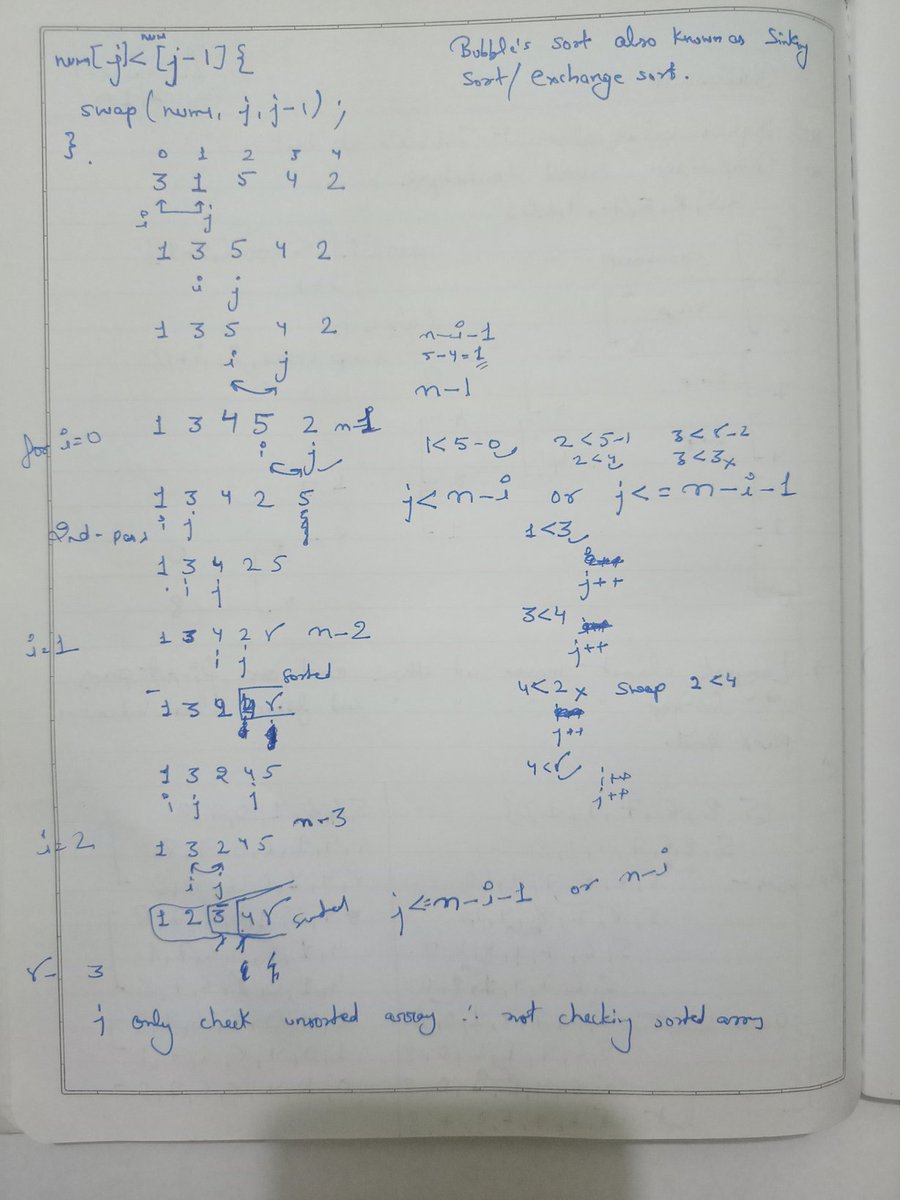 Bubble's sort also known as Sinking
Sort/ exchange sort.
num[j]< num[j-1] {
swap(nums, j, j-1);
}.
0 1 2 3 4
3 1 5 4 2
i j
1 3 5 4 2
i j
1 3 5 4 2
i j
n-i-1
5-4=1
n-1
for i=0
1 3 4 5 2 n-1
i j
1<5-0 2<5-1 3<5-2
2<4 3<3x
1 3 4 2 5
i j
j< n-i or j<= n-i-1
2nd-pass
1<3
1 3 4 2 5
i j
j++
i=1
1 3 4 2 5 n-2
i j
3<4
j++
sorted
1 3 2 4 5
4<2 x swap 2<4
j++
1 3 2 4 5
i j j
4<5
i++
j++
n-3
i=2
1 3 2 4 5
i j
1 2 3 4 5 sorted
j<=n-i-1 or n-i
5- 3
j only check unsorted array ∴ not checking sorted array